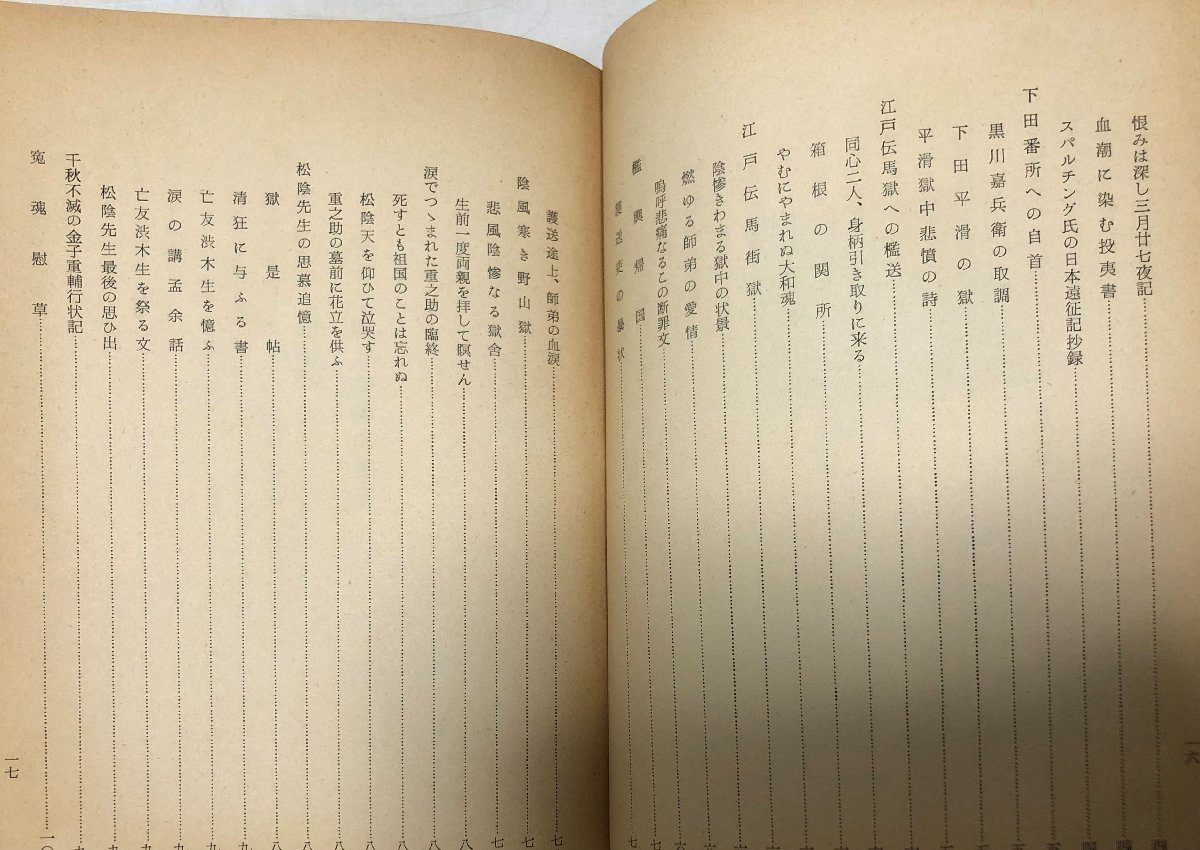 恨みは深し三月廿七夜記
血潮に染む投夷書
スパルチング氏の日本遠征記抄録
下田番所への自首
黒川嘉兵衛の取調
下田平滑の獄
平滑獄中悲憤の詩
江戸伝馬獄への檻送
同心二人、身柄引き取りに来る
箱根の関所
やむにやまれぬ大和魂
江戸伝馬街獄
陰惨きわまる獄中の状景
燃ゆる師弟の愛情
嗚呼悲痛なるこの断罪文
檻輿帰国
護送吏の暴状
一六
護送途上、師弟の血涙
陰風寒き野山獄
悲風陰惨なる獄舎
生前一度両親を拝して瞑せん
涙でつゝまれた重之助の臨終
死すとも祖国のことは忘れぬ
松陰天を仰ひて泣哭す
重之助の墓前に花立を供ふ
松陰先生の思慕追憶
獄是帖
清狂に与ふる書
亡友渋木生を憶ふ
涙の講孟余話
亡友渋木生を祭る文
松陰先生最後の思ひ出
千秋不滅の金子重輔行状記
冤魂慰草
一七